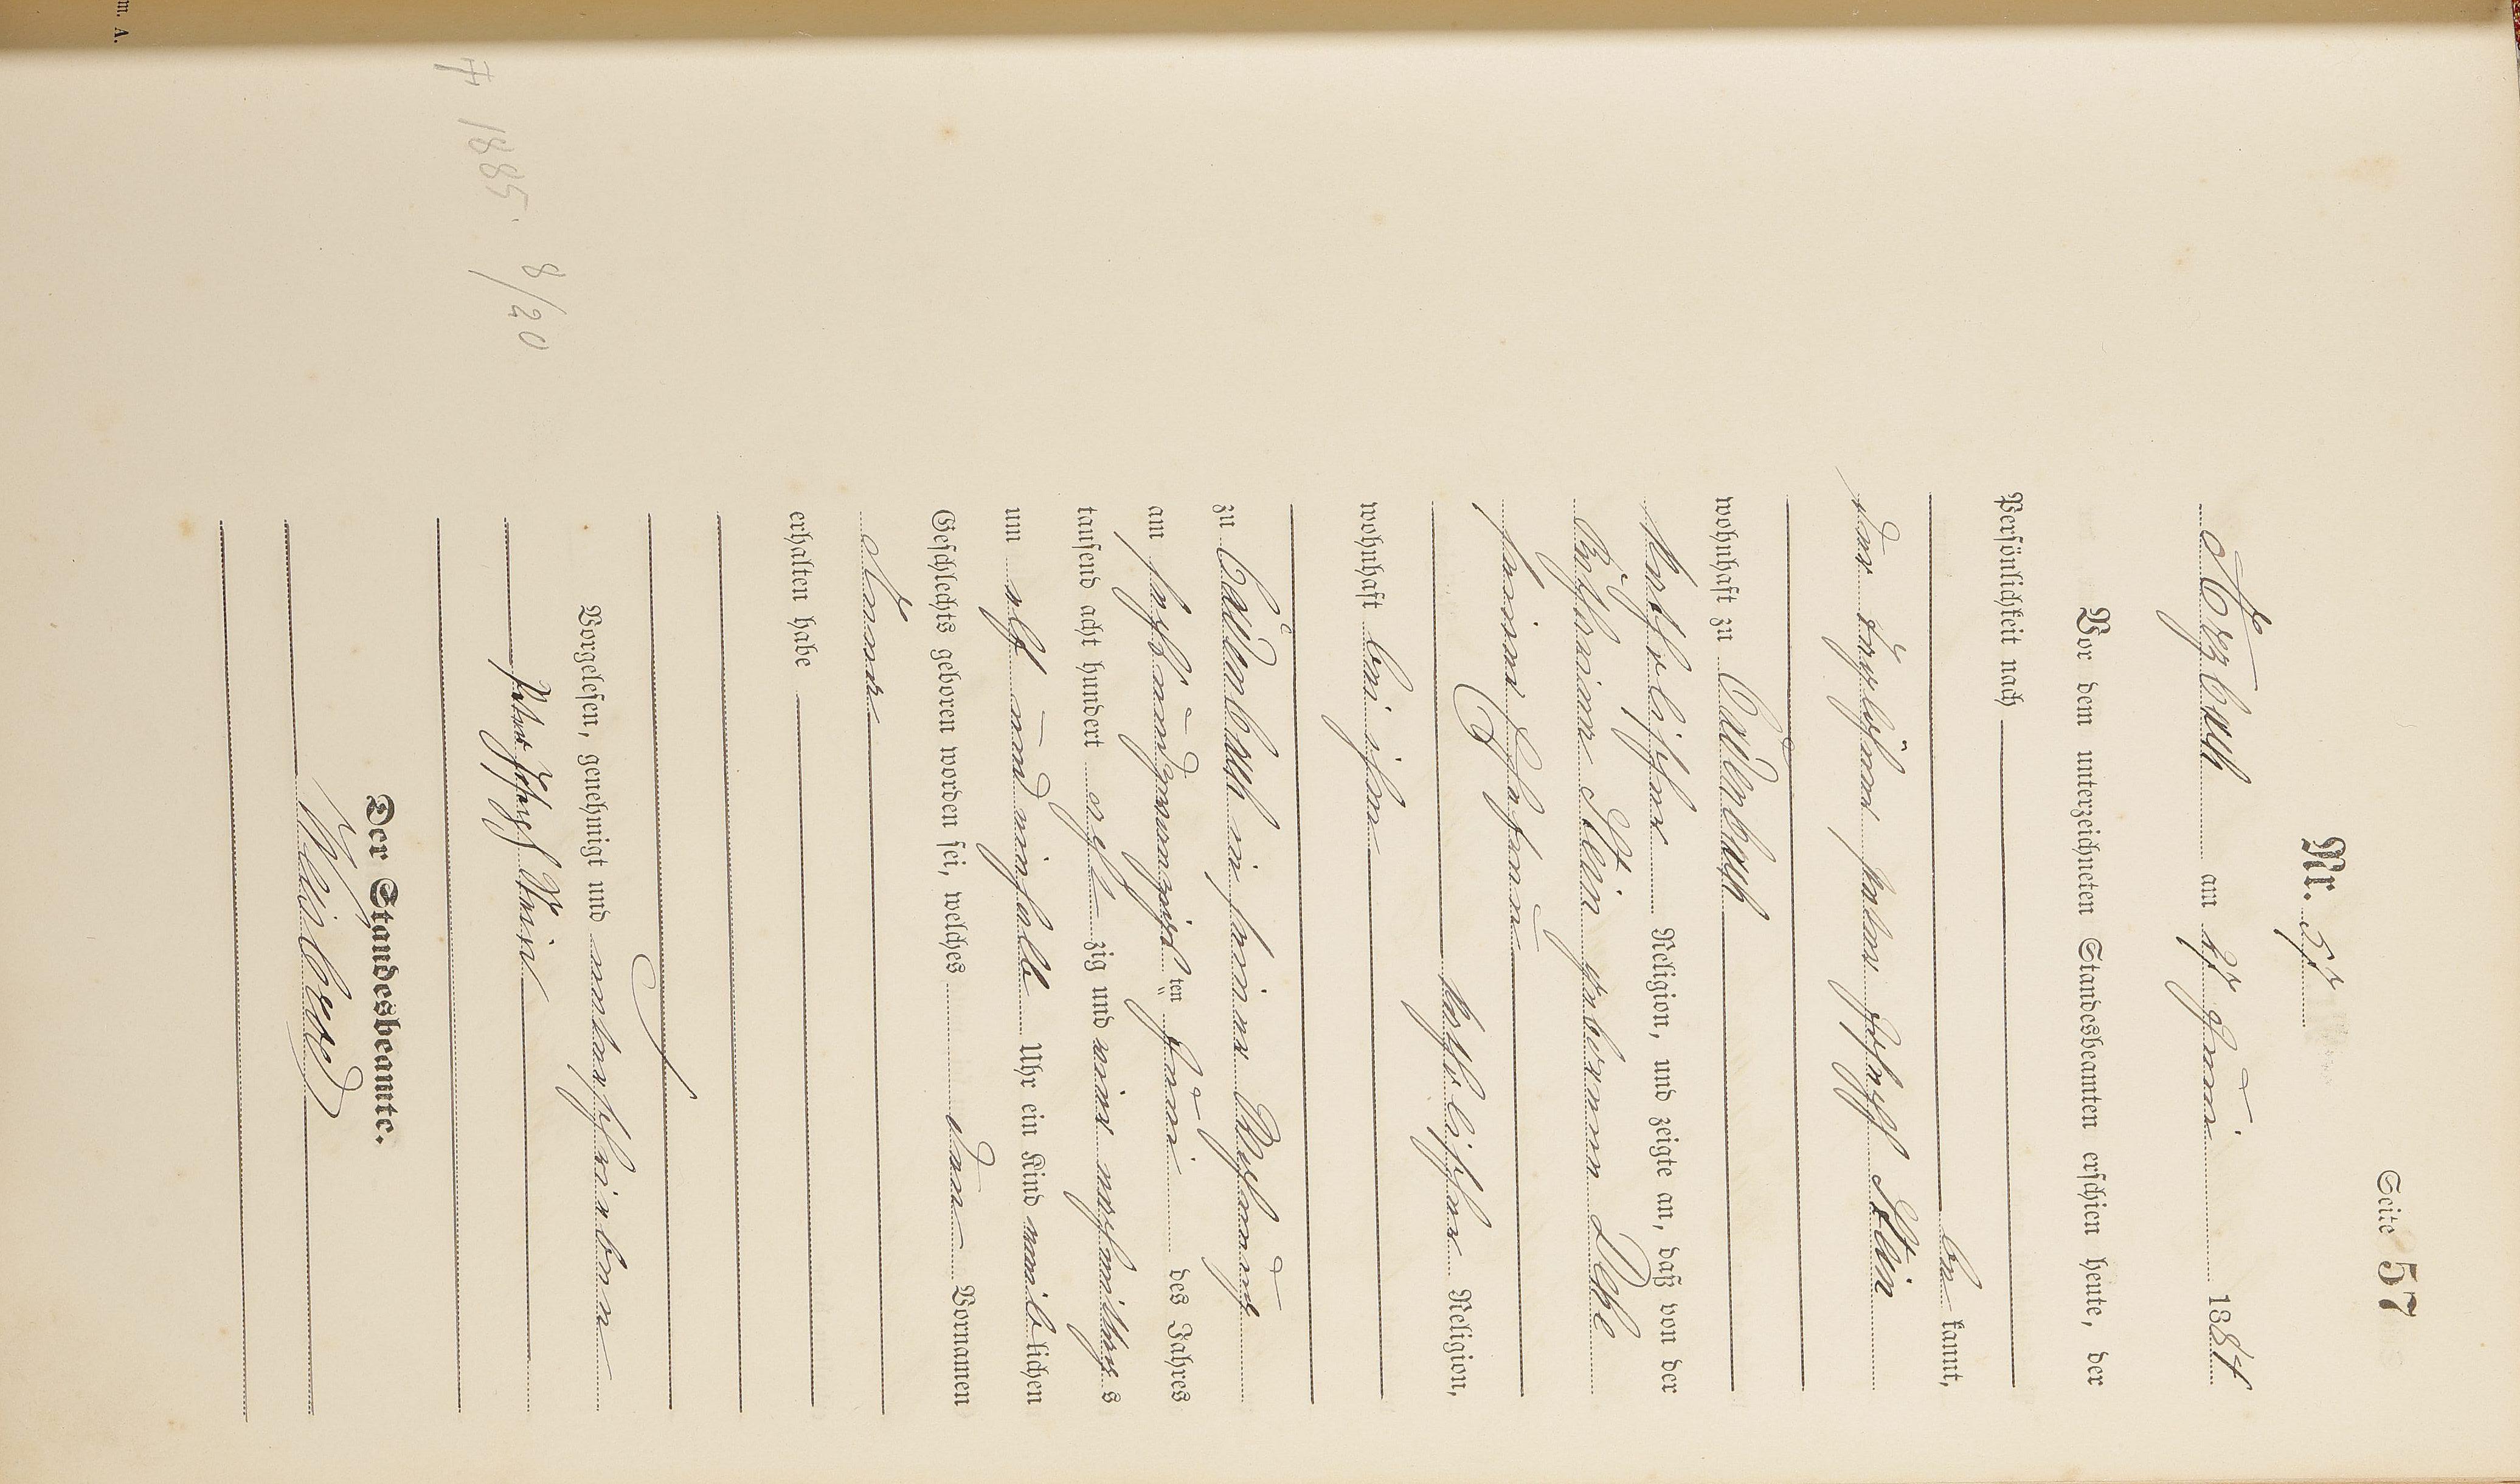 Seite 57
Nr. 57
Arzbach am 27 Juni 1884
Vor dem unterzeichneten Standesbeamten erschien heute, der
Persönlichkeit nach
be kannt,
der Taglöhner Peter Joseph Stein
wohnhaft zu Cadenbach
katholischer Religion, und zeigte an, daß von der
Stein geborenen
seiner Ehefrau
katholischer Religion,
wohnhaft bei ihm
zu Cadenbach in seiner Behausung
am sechsundzwanzigsten ten Juni des Jahres
tausend acht hundert acht zig und vier nachmittags
um elf und einhalb Uhr ein Kind weiblichen
Geschlechts geboren worden sei, welches den Vornamen
Anna
erhalten habe
Vorgelesen, genehmigt und unterschrieben
Peter Joseph Stein
Der Standesbeamte.
† 1885. 8/20
m. A.